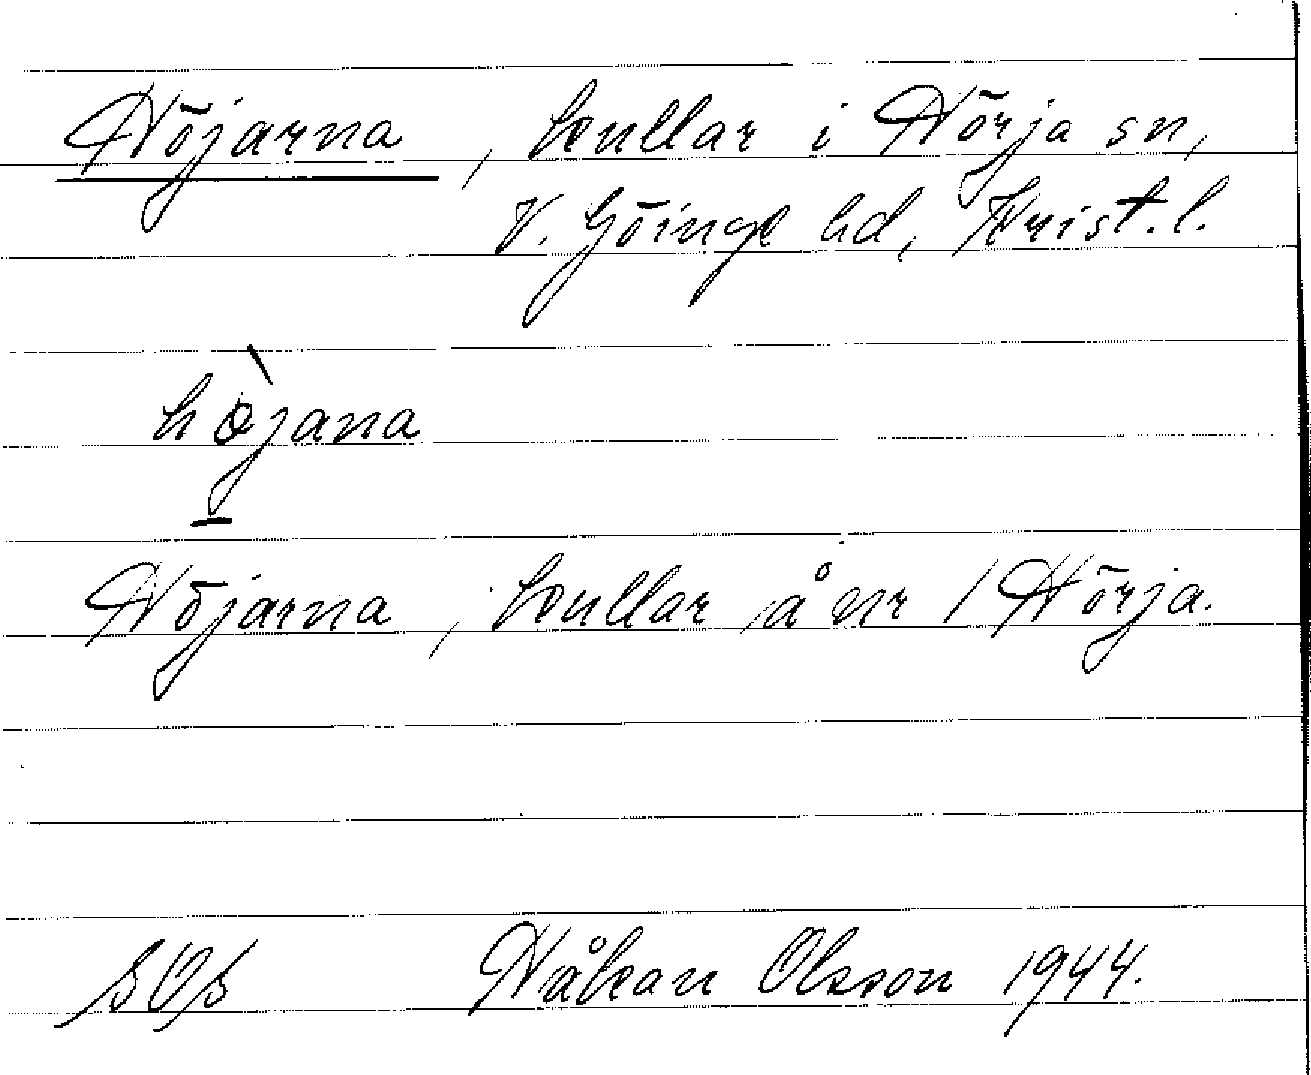 Höjarna, kullar i Hörja sn,
V. Göinge hd, Krist. l.
hø̀jana
Höjarna, kullar å nr 1 Hörja.
SOS Håkan Olsson 1944.